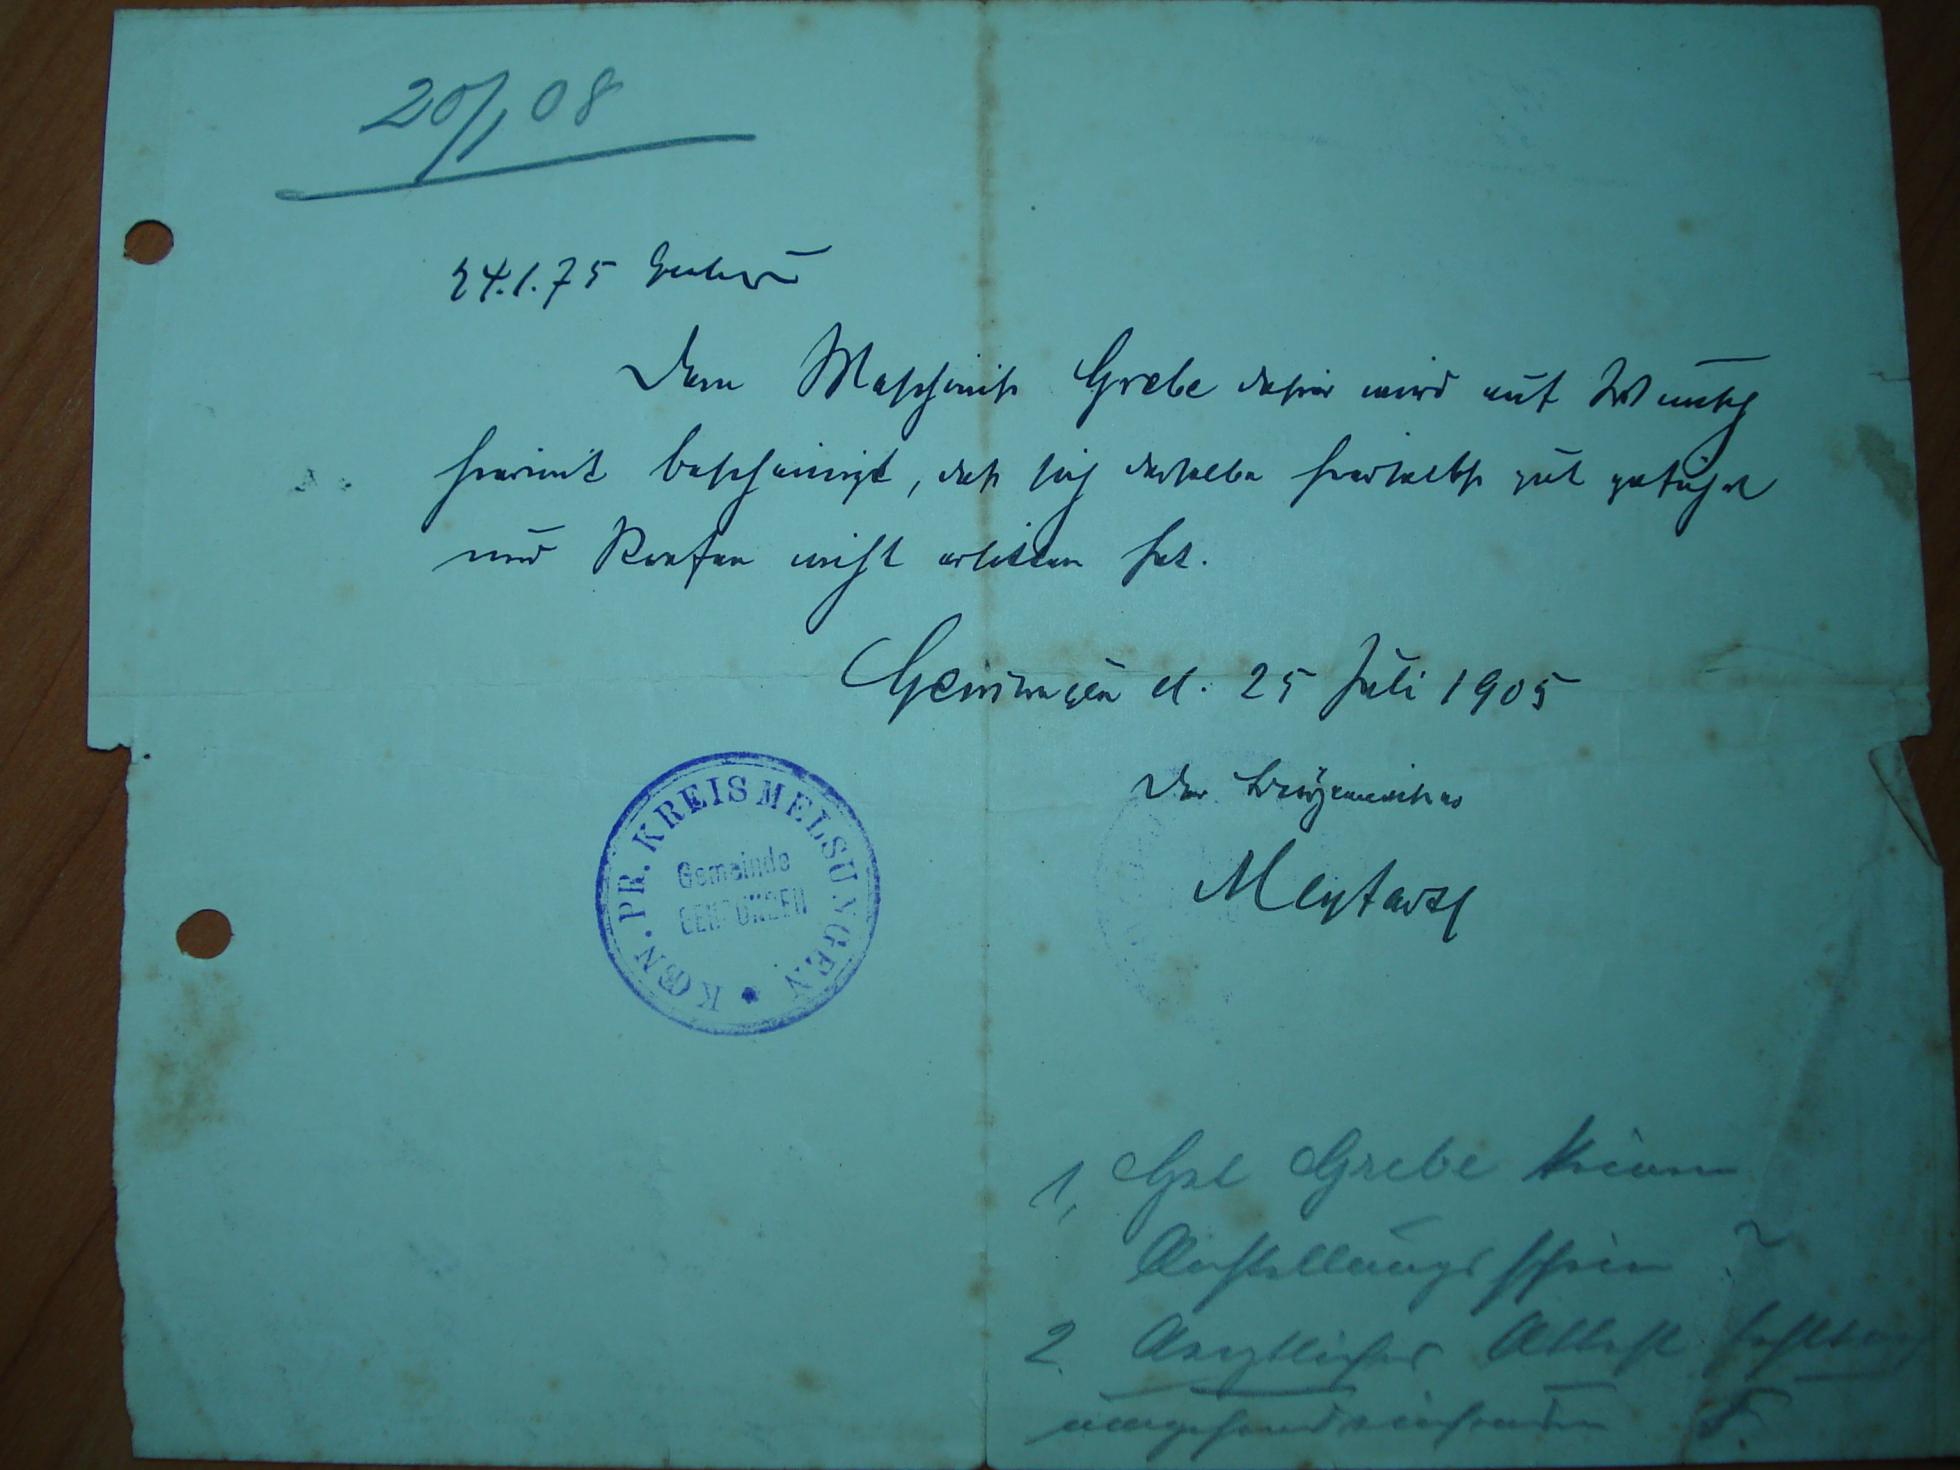 20/1 08
24.1.75 geboren
Dem Maschinist Grebe dahier wird auf Wunsch
hiermit bescheinigt, daß sich derselbe hierselbst gut geführt
und Strafen nicht erlitten hat.
Gensungen d. 25 Juli 1905
Der Bürgermeister
KŒN. PR. KREIS MELSUNGEN
Gemeinde
GENSUNGEN
1, Hat Grebe keinen
Anstellungsschein ?
2. Aerztliches Attest fehlt noch
umgehend einsenden F.